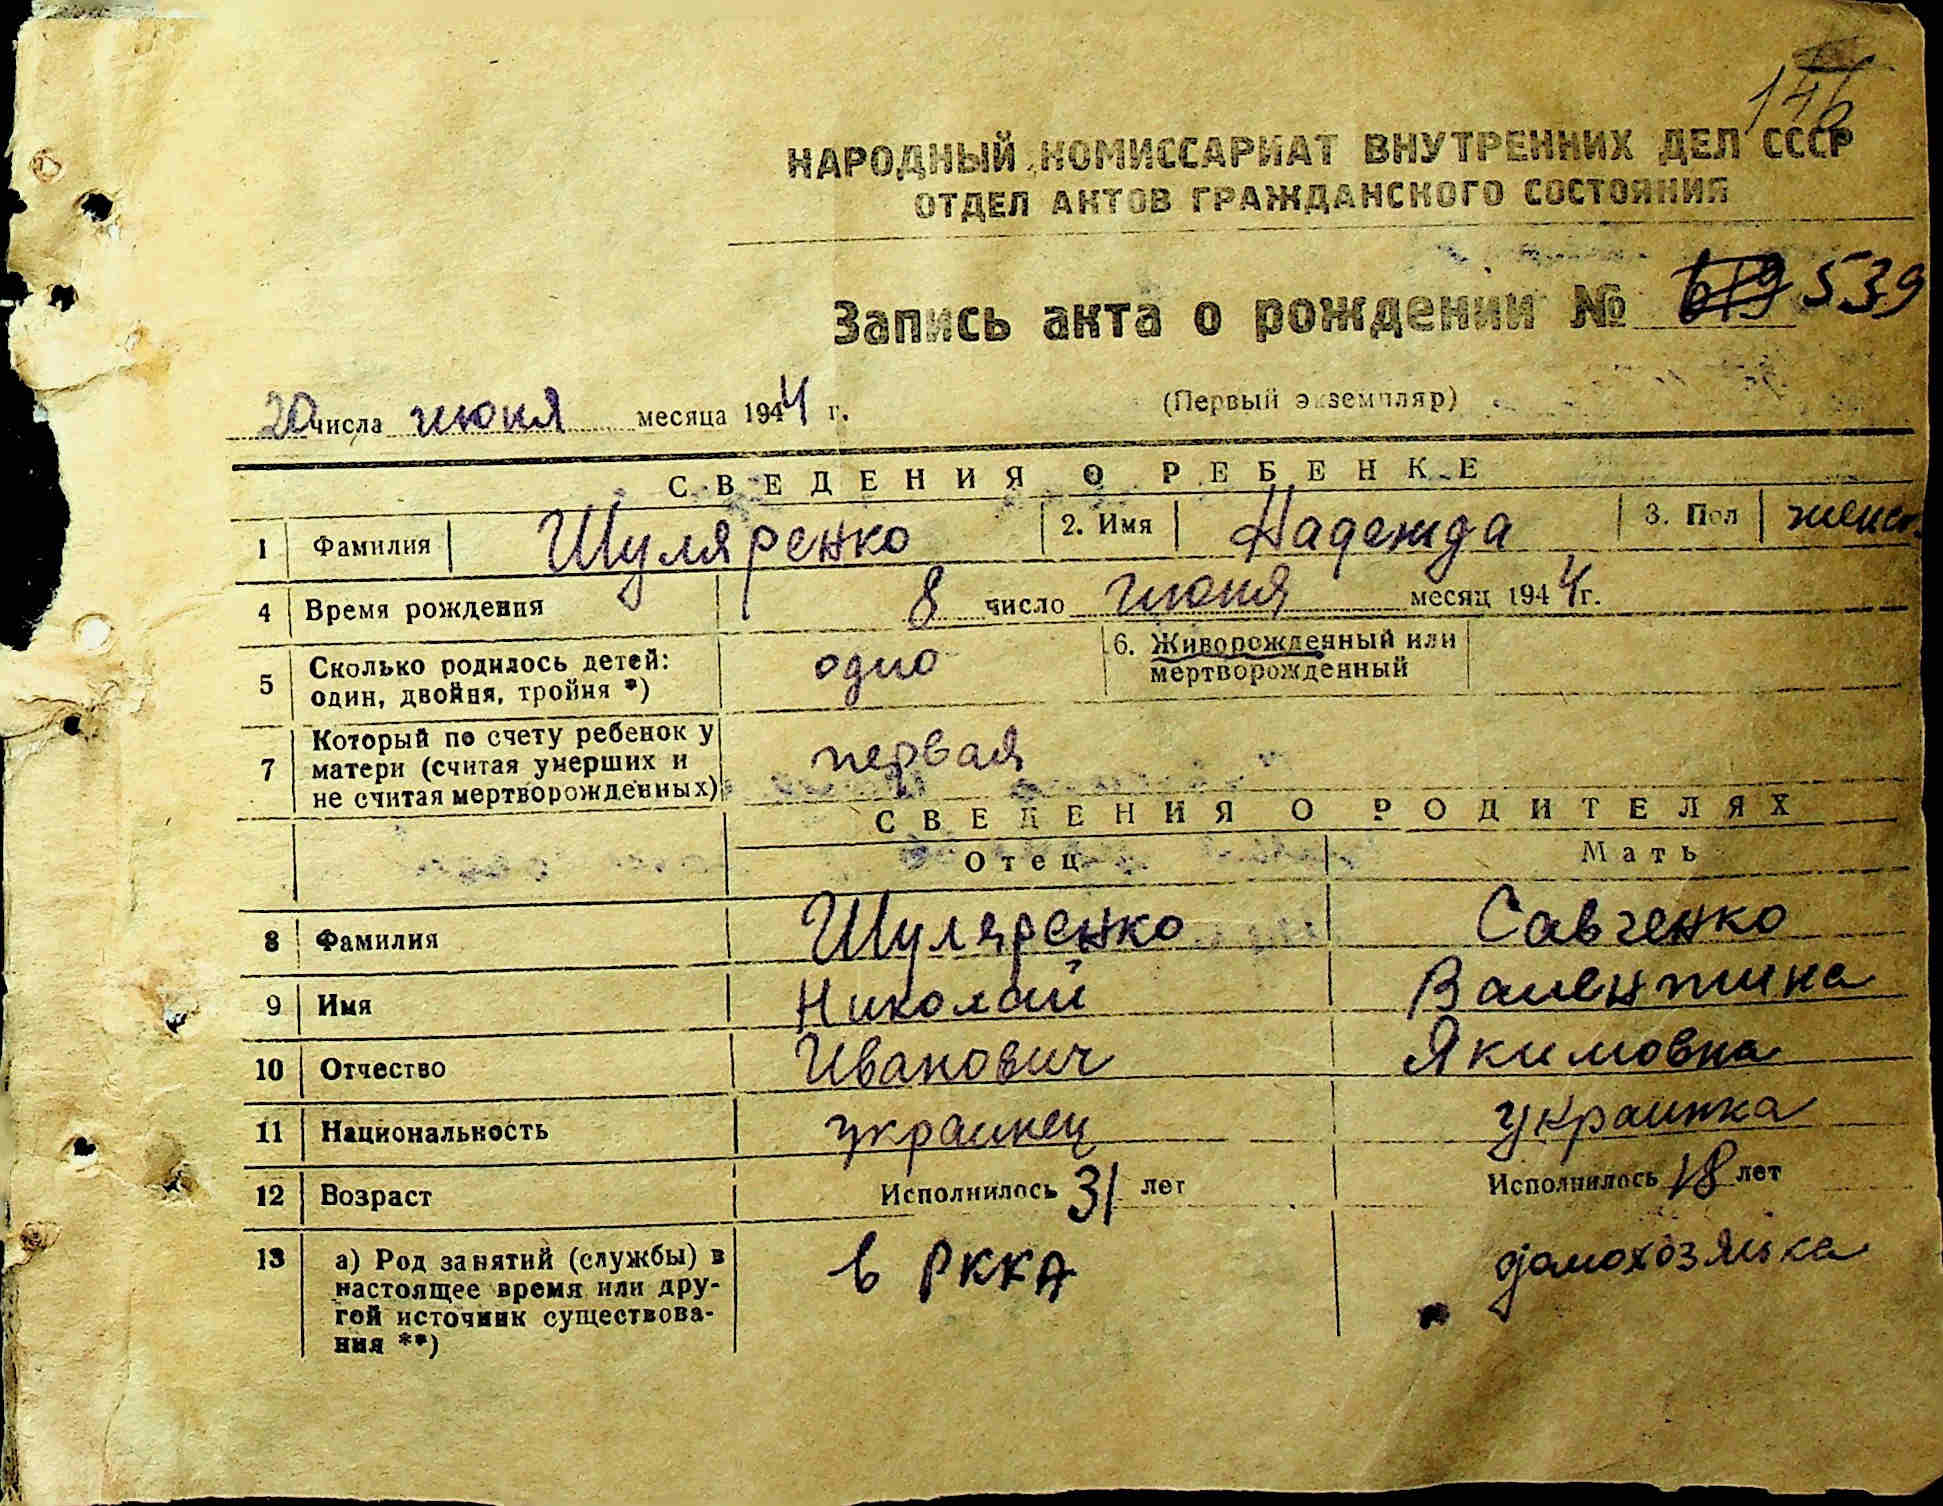 146
НАРОДНЫЙ КОМИССАРИАТ ВНУТРЕННИХ ДЕЛ СССР
ОТДЕЛ АКТОВ ГРАЖДАНСКОГО СОСТОЯНИЯ
Запись акта о рождении № 619 539
20 числа июня месяца 1944 г. (Первый экземпляр)
СВЕДЕНИЯ О РЕБЕНКЕ
1 Фамилия Шуляренко 2. Имя Надежда 3. Пол женск.
4 Время рождения 8 число июня месяц 1944 г.
5 Сколько родилось детей: один, двойня, тройня *) одно 6. Живорожденный или мертворожденный
7 Который по счету ребенок у матери (считая умерших и не считая мертворожденных) первая
СВЕДЕНИЯ О РОДИТЕЛЯХ
Отец Мать
8 Фамилия Шуляренко Савченко
9 Имя Николай Валентина
10 Отчество Иванович Якимовна
11 Национальность украинец украинка
12 Возраст Исполнилось 31 лет Исполнилось 18 лет
13 а) Род занятий (службы) в настоящее время или дру-
гой источник существова-
ния **) в РККА домохозяйка